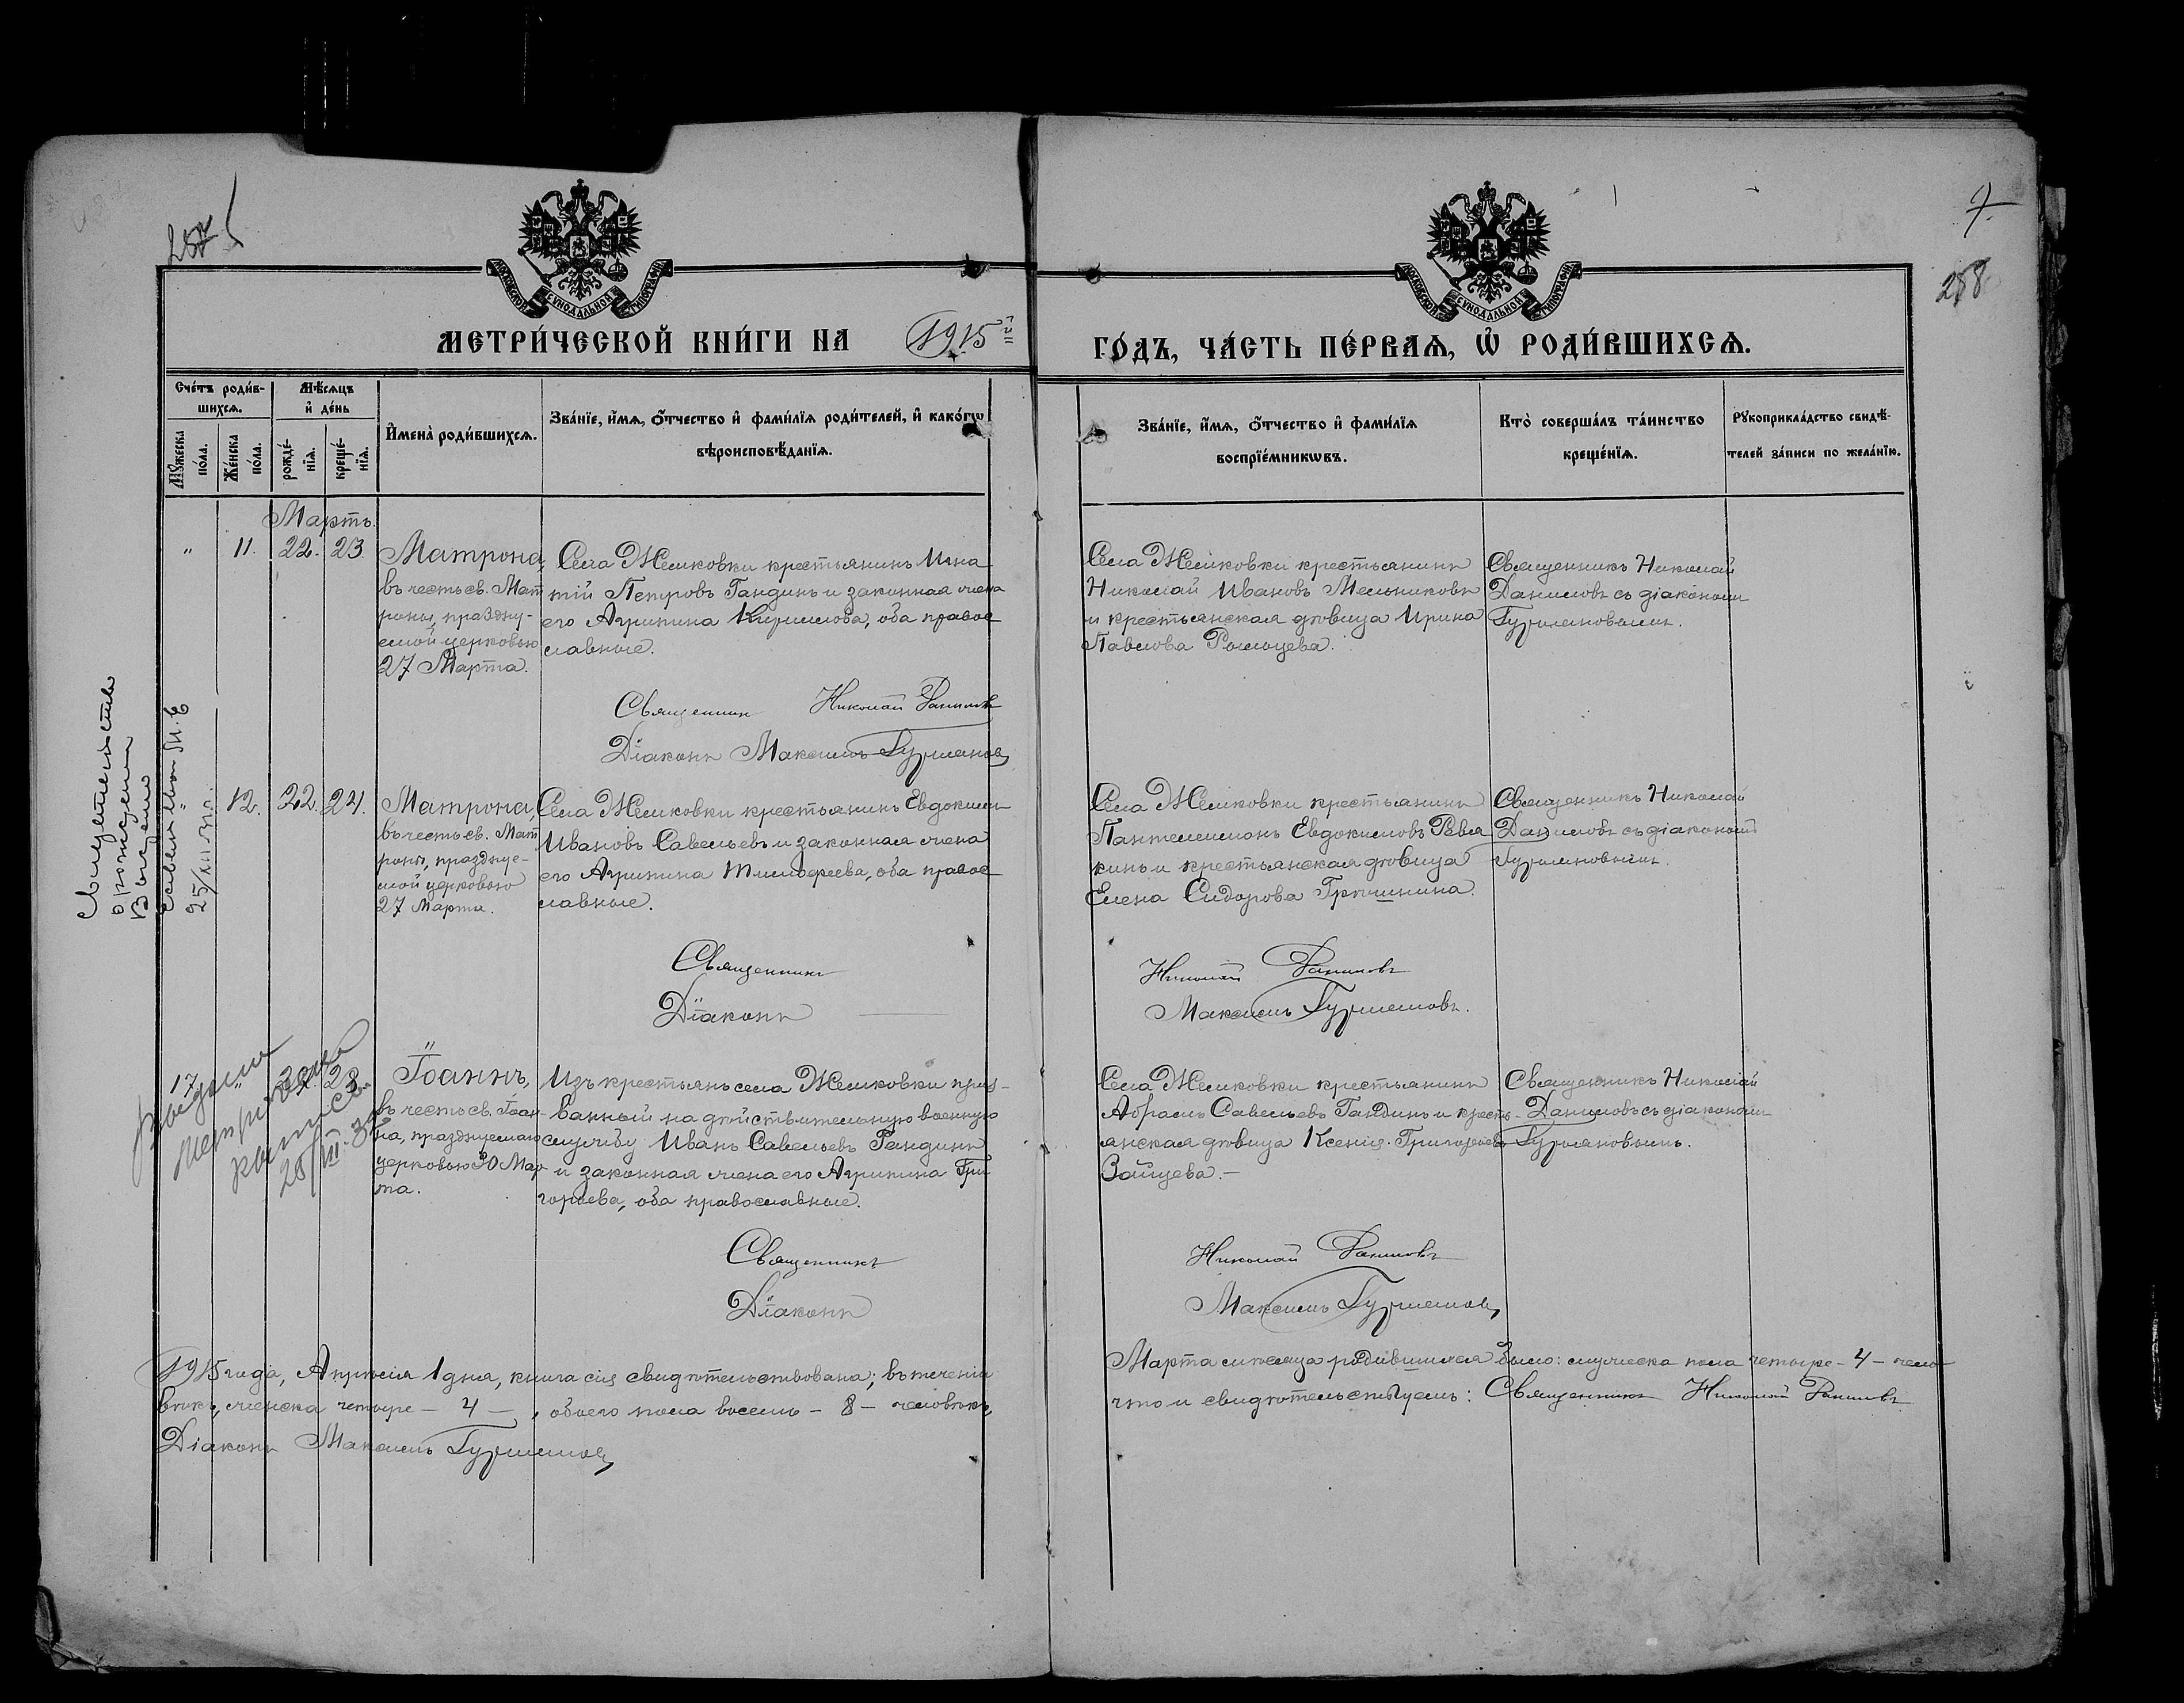 5
7
288
МОСКОВСКОЙ СУНОДАЛЬНОЙ ТИПОГРАФІИ
МОСКОВСКОЙ СУНОДАЛЬНОЙ ТИПОГРАФІИ
МЕТРИ́ЧЕСКОЙ КНИ́ГИ НА 1915й
ГО́ДЪ, ЧА́СТЬ ПЕ́РВАѦ, Ѡ҆ РОДИ́ВШИХСѦ.
Сче́тъ роди́в-
шихсѧ.
Мꙋ́жеска
по́ла.
Же́нска
по́ла.
Мѣ́сѧцъ
и҆ де́нь
рожде́-
нїѧ.
креще́-
нїѧ.
И҆мена̀ роди́вшихсѧ.
Зва́нїе, и҆́мѧ, ѻ҆́тчество и҆ фами́лїѧ роди́телей, и҆ како́гѡ
вѣроисповѣ́данїѧ.
Зва́нїе, и҆́мѧ, ѻ҆́тчество и҆ фами́лїѧ
воспрїе́мникѡвъ.
Кто̀ соверша́лъ та́инство
креще́нїѧ.
Рꙋкоприкла́дство свидѣ́-
телей за́писи по жела́нїю.
Мартъ.
" 11. 22. 23
Матрона,
въ честь св. Мат
роны, праздну-
емой церковью
27 Марта.
Села Жемковки крестьянинъ Игна
тій Петровъ Гандинъ и законная жена
его Агрипина Кирилова, оба правос
лавные.
Священник Николай Данилов
Діаконъ Максимъ Гурьянов
Села Жемковки крестьянинъ
Николай Ивановъ Мельниковъ
и крестьянская дѣвица Ирина
Павлова
Священникъ Николай
Даниловъ съ діакономъ
Гурьяновымъ.
Свидетельство
о рождении
Выдано
25/XII
" 12. 22. 24.
Матрона,
въ честь св. Мат
роны, праздуе-
мой церковью
27 Марта.
Села Жемковки крестьянинъ Евдокимъ
Ивановъ Савельевъ и законная жена
его Агрипина Тимофеева, оба правос
лавные.
Священникъ
Діаконъ
Села Жемковки крестьянинъ
Пантелеимонъ Евдокимовъ Ревя
кинъ и крестьянская дѣвица
Елена Сидорова
Священникъ Николай
Даниловъ съ діакономъ
Гурьяновымъ.
Николай Даниловъ
Максимъ Гурьяновъ.
Выдана
метрическая
выпись
17. " 28.
Іоаннъ,
въ честь св. Іоан-
на, празднуемаго
церковью 30 Мар
та.
Изъ крестьянъ села Жемковки приз-
ванный на дѣйствительную военную
службу Иванъ Савельевъ Гандинъ
и законная жена его Агрипина Гри
горьева, оба православные.
Священникъ
Діаконъ
Села Жемковки крестьянинъ
Абрамъ Савельевъ Гандинъ и кресть-
янская дѣвица Ксенія Григорьева
Зайцева.-
Священникъ Николай
Даниловъ съ діакономъ
Гурьяновымъ.
Николай Даниловъ
Максимъ Гурьянов
1915 года, Апрѣля 1 дня, книга сія свидѣтельствована; въ теченіи
Марта мѣсяца родившихся было: мужеска пола четыре - 4 - чело-
вѣкъ, женска четыре - 4 -, обоего пола восемь - 8 - человѣкъ,
что и свидѣтельствуемъ: Священникъ Николай Даниловъ
Діаконъ Максимъ Гурьянов